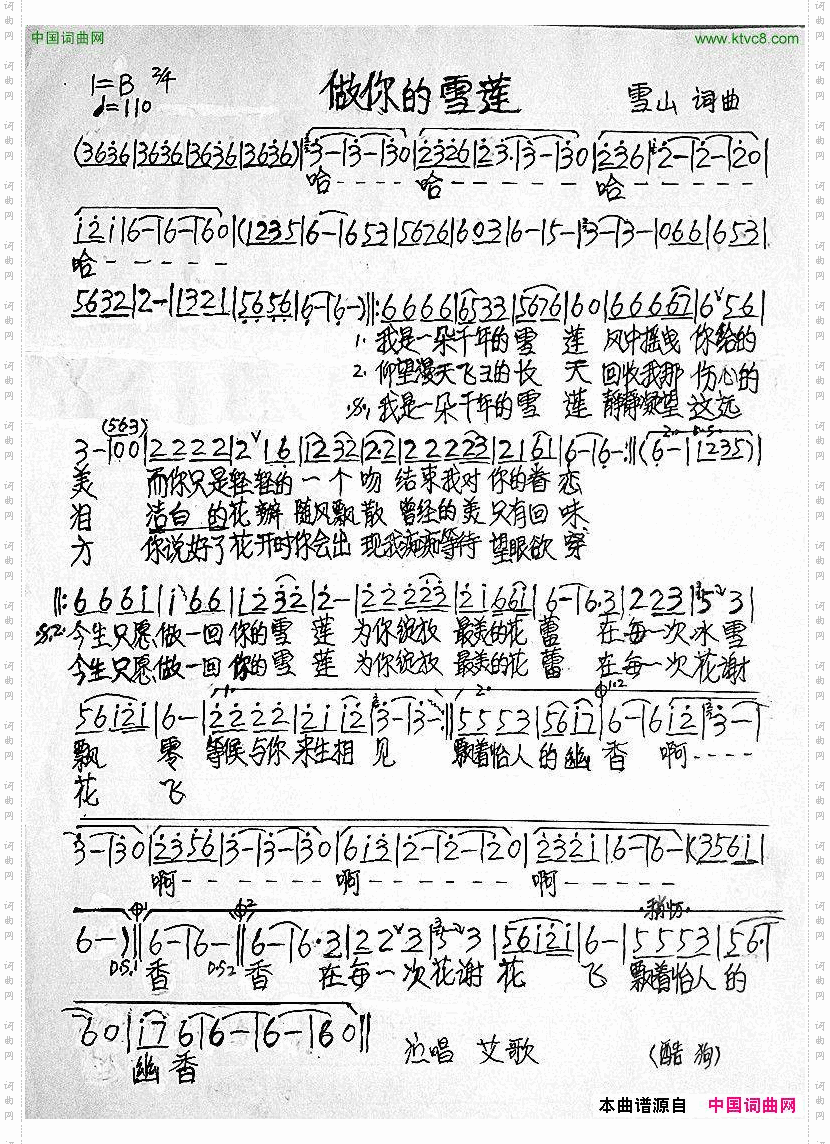 中国词曲网 www.ktvc8.com
1=B 2/4 做你的雪莲 雪山 词曲
♩=110
(3636|3636|3636|3636)|3-|3-|30|2326|23·|3-|30|236|2-|2-|20|
哈---- 哈---- 哈----
i2i|6-|6-|60|(1235|6-|653|5676|603|6-|5-|3-|3-|066|653|
哈-----
5632|2-|1321|5656|6-|6-)‖:6666|6533|5676|60|66667|6 56|
1. 我是一朵千年的雪 莲 风中摇曳 你给的
2. 仰望漫天飞卫的长 天 回收我那 伤心的
我是一朵千年的雪 莲 静静凝望 这远
(563)
3-|00|2222|2 16|1232|2·2|22223|2161|6-|6-:‖(6-|1235)|
美 而你只是轻轻的一个吻 结束我对你的眷恋
泪 洁白的花瓣随风飘散 曾经的美只有回味
方 你说好了花开时你会出现我痴痴等待望眼欲穿
‖:666i|i 66|1232|2-|22223|2i66i|6-|6·3|223|5 3|
今生只愿做一回你的雪 莲 为你绽放 最美的花 蕾 在每一次冰雪
今生只愿做一回你的雪 莲 为你绽放 最美的花 蕾 在每一次花谢
56i2i|6-|2222|2ii2|3-|3-:‖5553|56i7|6-|6i2|3-|
飘 零 等候与你来生相 见 飘着怡人的幽 香 啊----
花 飞
3-|30|2356|3-|3-|30|6i3|2-|2-|20|232i|6-|6-|(356i|
啊----- 啊----- 啊-----
稍慢
6-)‖6-|6-‖6-|6·3|22 3|5 3|56i2i|6-|5553|56·|
D.S.1 香 D.S.2 香 在每一次花谢 花 飞 飘着怡人的
60|i76|6-|6-|60‖ 演唱 艾歌 (酷狗)
幽 香
本曲谱源自 中国词曲网